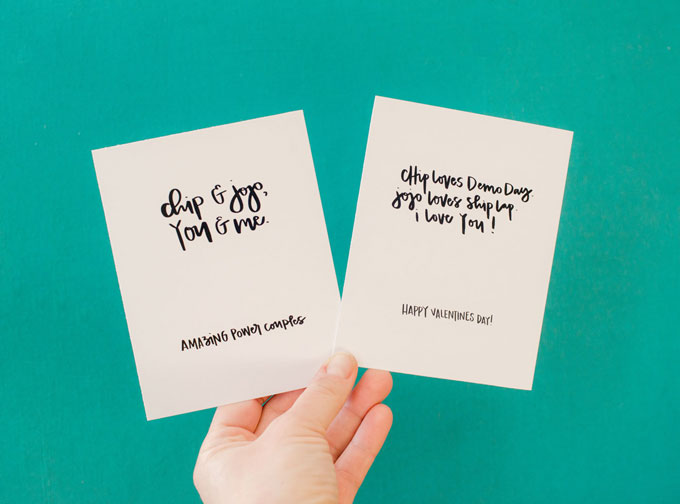 chip & jojo,
you & me.
AMAZING POWER COUPLES
CHip Loves Demo Day.
jojo loves ship lap
i Love You!
HAPPY VALENTINES DAY!